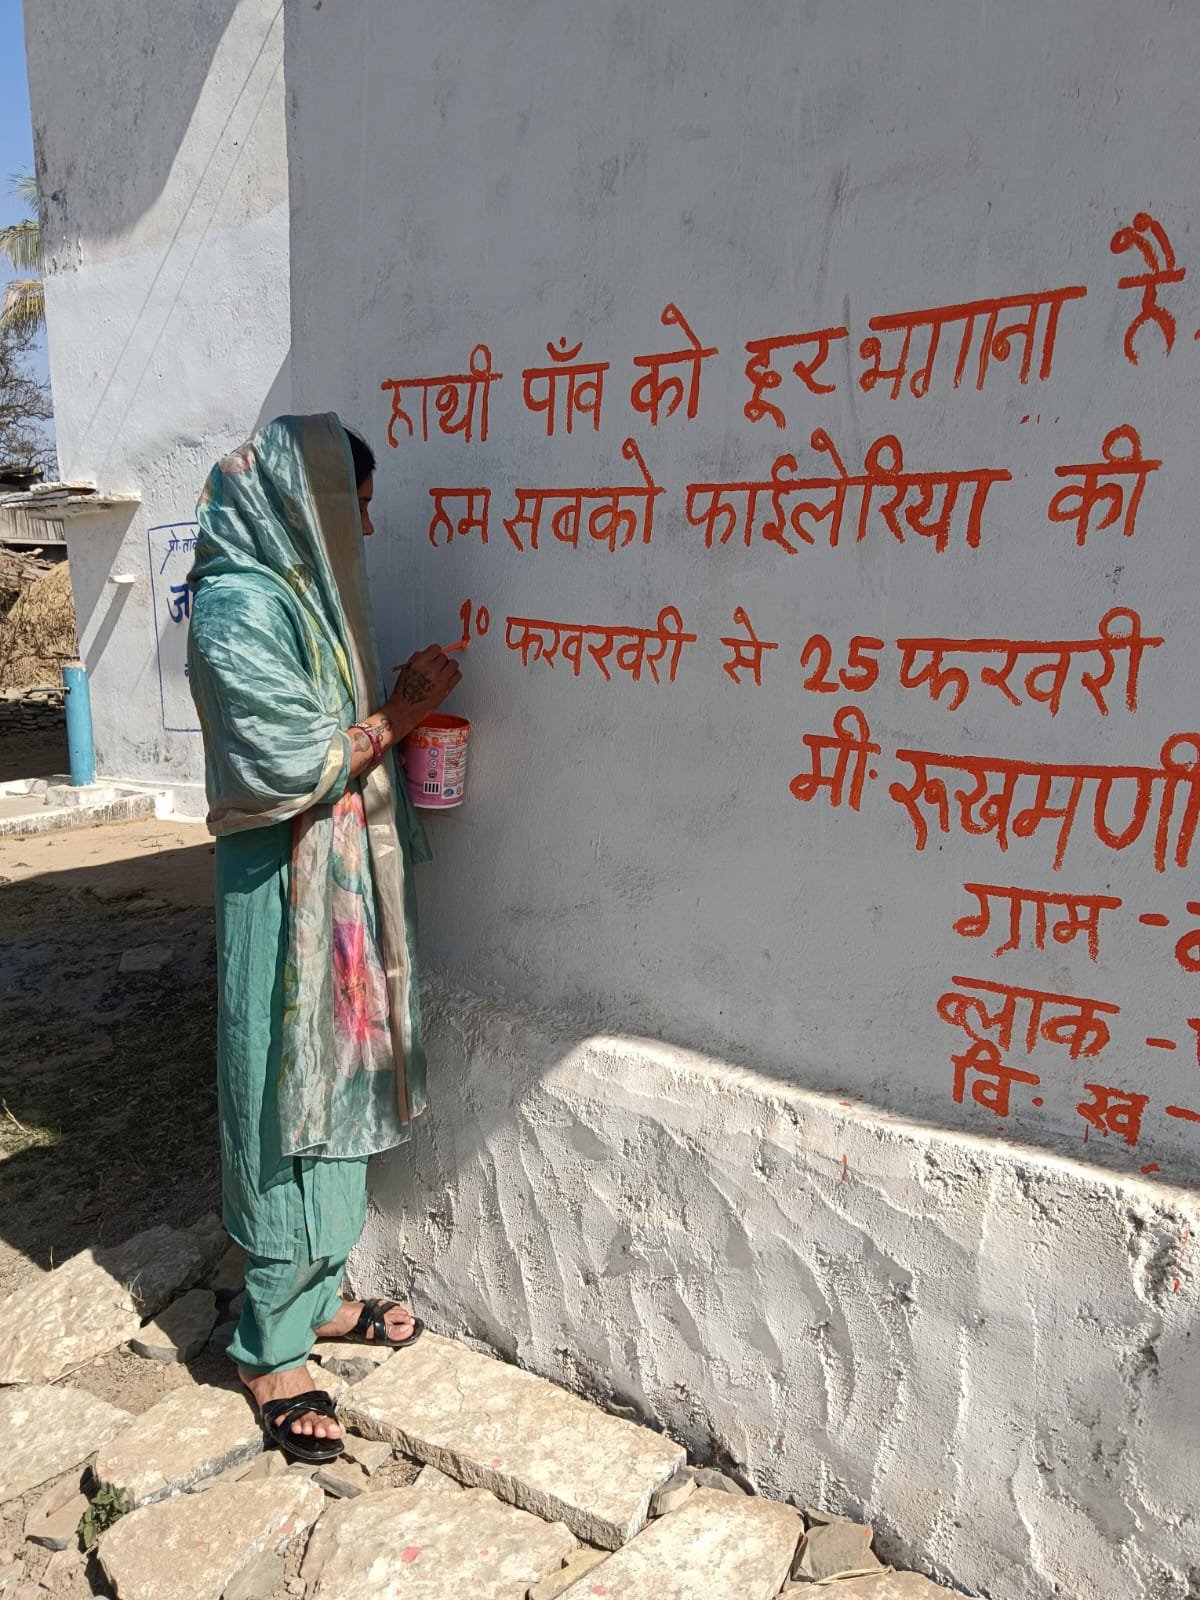 हाथी पाँव को दूर भगाना है
हम सबको फाईलेरिया की
10 फरवरी से 25 फरवरी
मी. रूखमणी
ग्राम -
ब्लाक -
वि. ख -
प्रो.